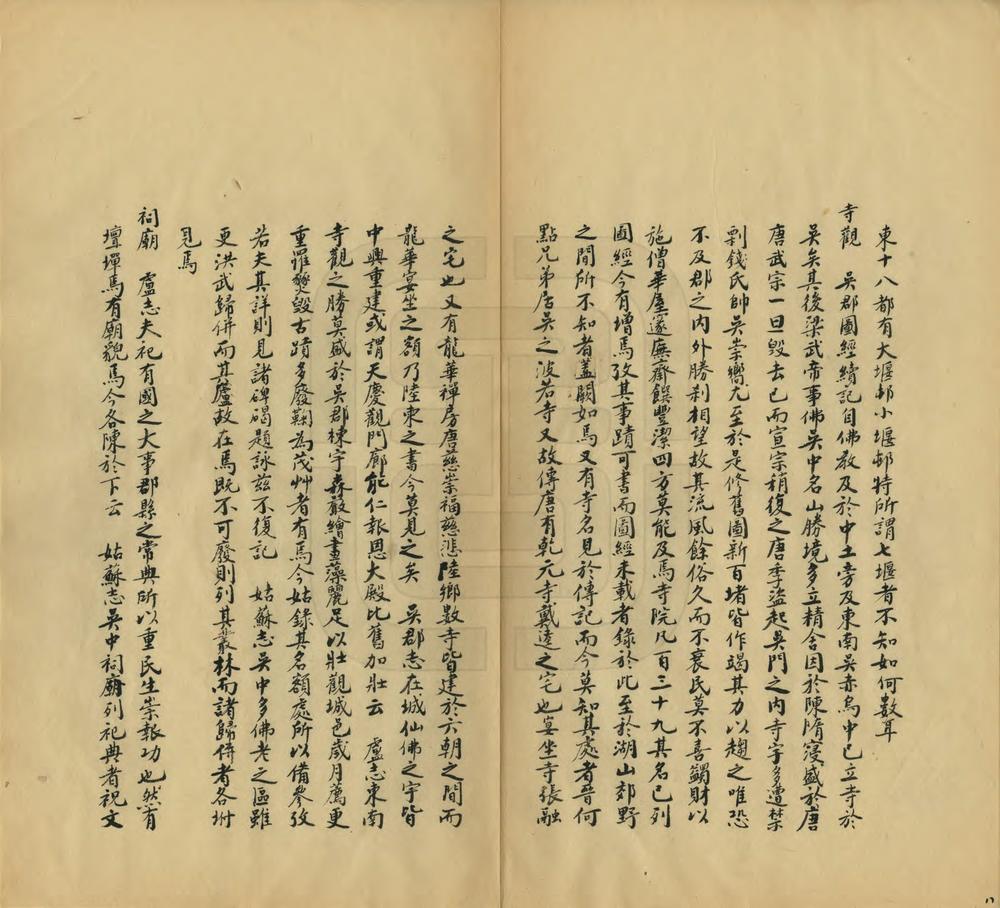 東十八都有大堰邨小堰邨特所謂七堰者不知如何數耳
寺觀　吳郡圖經續記自佛教及於中土旁及東南吳赤烏中已立寺於
吳矣其後梁武帝事佛吳中名山勝境多立精舍因於陳隋寖盛於唐
唐武宗一旦毀去已而宣宗稍復之唐季盜起吳門之內寺宇多遭焚
剽錢氏帥吳崇嚮尤至於是修舊圖新百堵皆作竭其力以趨之唯恐
不及郡之內外勝刹相望故其流風餘俗久而不衰民莫不喜蠲財以
施僧華屋邃廡齋饌豐潔四方莫能及焉寺院凡百三十九其名已列
圖經今有增焉攷其事蹟可書而圖經未載者錄於此至於湖山郊野
之間所不知者蓋闕如焉又有寺名見於傳記而今莫知其處者晉何
點兄弟居吳之波若寺又故傳唐有乾元寺戴逵之宅也宴坐寺張融
之宅也又有龍華禪房唐慈崇福慈悲陸鄉數寺皆建於六朝之間而
龍華宴坐之額乃陸柬之書今莫見之矣　吳郡志在城仙佛之宇皆
中興重建或謂天慶觀門廊能仁報恩大殿比舊加壯云　盧志東南
寺觀之勝莫盛於吳郡棟宇森嚴繪畫藻麗足以壯觀城邑歲月薦更
重罹燹毀古蹟多廢鞠為茂艸者有焉今姑錄其名額處所以備參攷
若夫其詳則見諸碑碣題詠茲不復記　姑蘇志吳中多佛老之區雖
更洪武歸併而其廬故在焉既不可廢則列其叢林而諸歸併者各坿
見焉
祠廟　盧志夫祀有國之大事郡縣之常典所以重民生崇報功也然有
壇墠焉有廟貌焉今各陳於下云　姑蘇志吳中祠廟列祀典者祝文